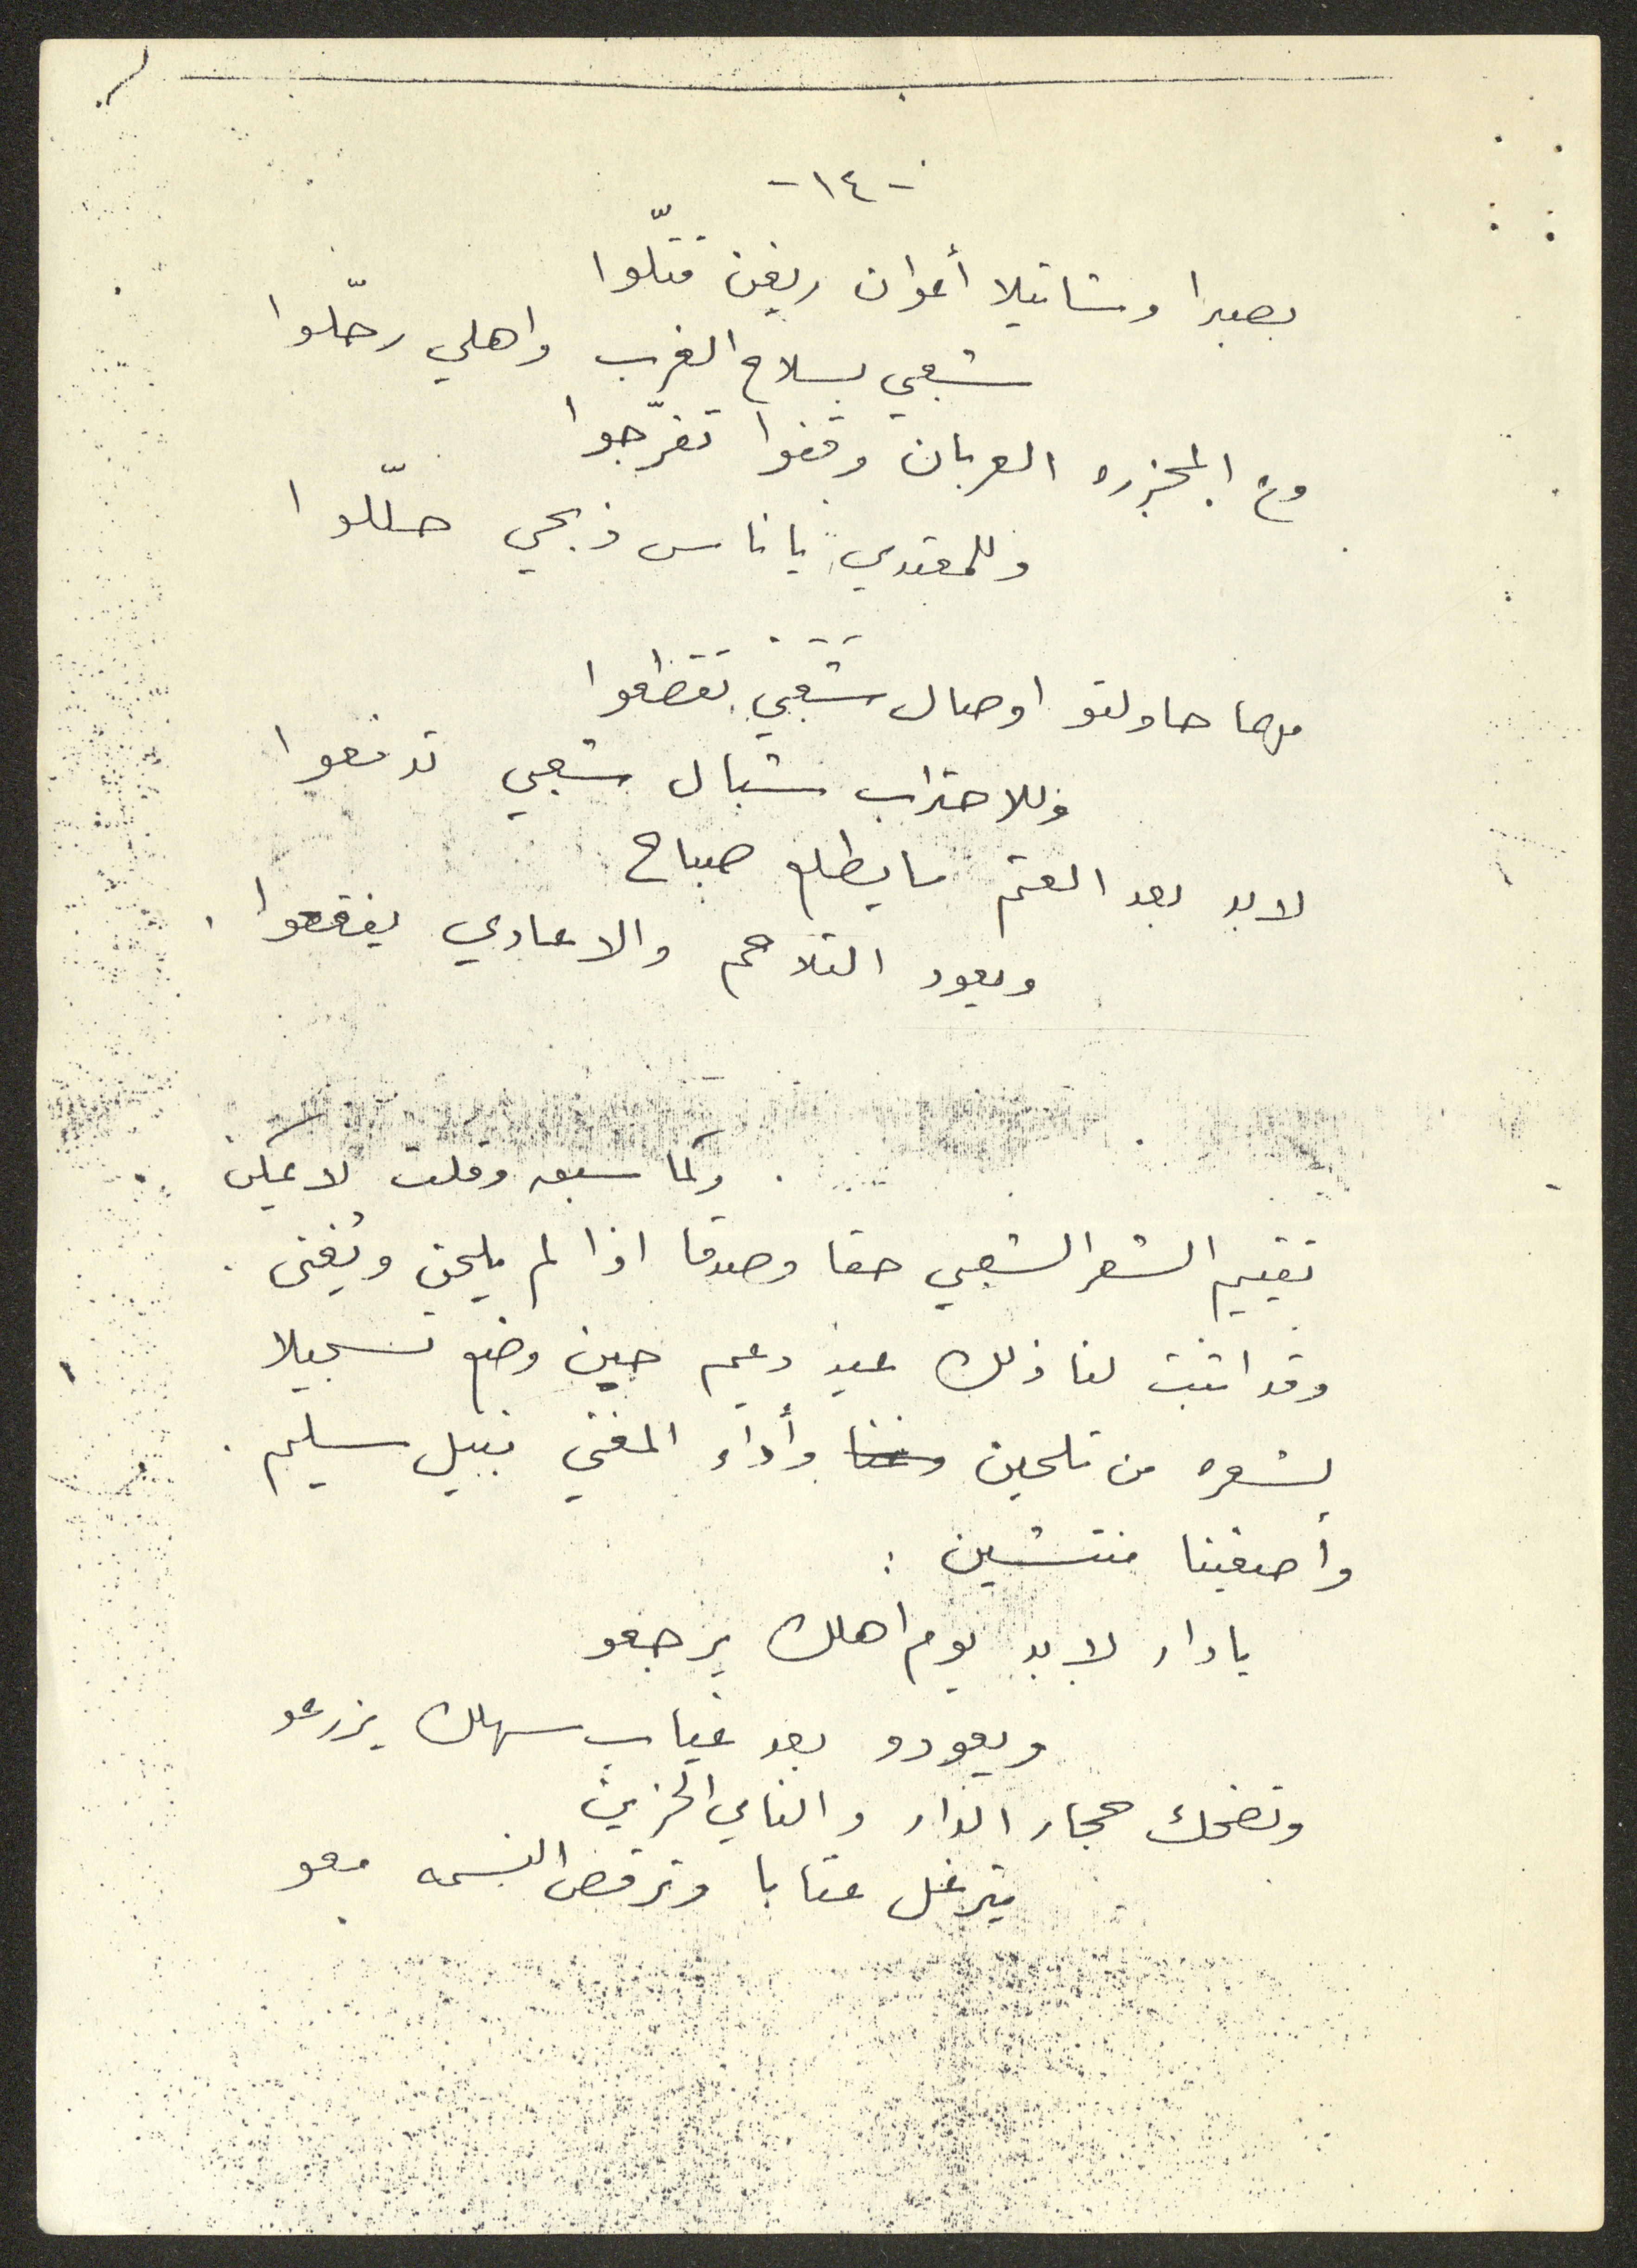 -١٤-
بصبرا وشاتيلا أعوان ريغن قتلّوا
شعبي بسلاح الغرب واهلي رحّلوا
وع المجزره العربان وقفوا تفرّجوا
وللمعتدي ياناس ذبحي حلّلوا
مهما حاولتو اوصال شعبي تقطعوا
وللاحتراب شبال شعبي تدفعوا
لابد بعد العتم مايطلع صباح
ويعود التلاحم والاعادي يفقعوا .
. وكما سبق وقلت لا يمكن
تقييم الشعر الشعبي حقا وصدقا اذا لم يلحن ويُغنى .
وقد اثبت لنا ذلك عيد دعيم حين وضع تسجيلا
بشعره من تلحين وأداء المغني نبيل سليم .
وأصغينا منتشين :
يادار لابد يوم اهلك يرجعو
ويعودو بعد غياب سهلك يزرعو
وتضحك حجار الدار والناي الحزين
يترغل عتابا وترقص النسمه معو